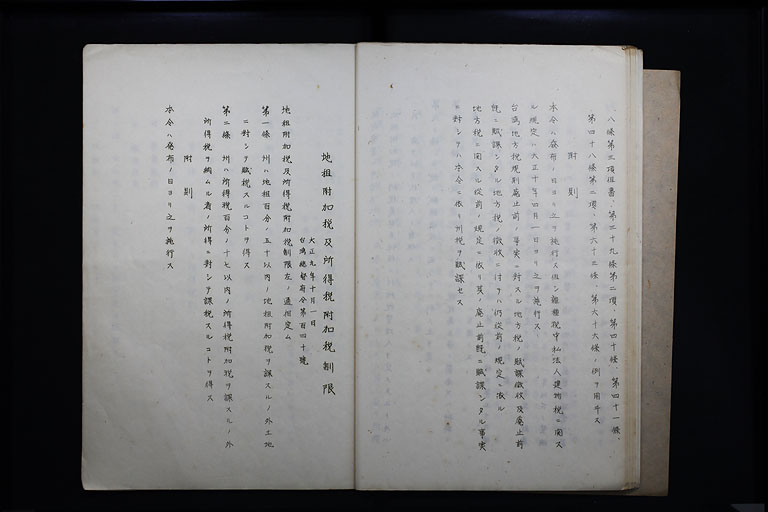 八條第三項但書、第三十九條第二項、第四十條、第四十一條、
第四十八條第二項、第六十三條、第六十六條ノ例ヲ用井ス
附則
本令ハ發布ノ日ヨリ之ヲ施行ス但シ雜種税中私法人建物税ニ關ス
ル規定ハ大正十年四月一日ヨリ之ヲ施行ス
台灣地方税規則廢止前ノ事實ニ對スル地方税ノ賦課徵收及廢止前
既ニ賦課シタル地方税ノ徵收ニ付テハ仍從前ノ規定ニ依ル
地方税ニ關スル從前ノ規定ニ依リ其ノ廢止前既ニ賦課シタル事實
ニ對シテハ本令ニ依リ州税ヲ賦課セス
地租附加税及所得税附加税制限
大正九年十月一日
台灣總督府令第百四十號
地租附加税及所得税附加税制限左ノ通相定ム
第一條 州ハ地租百分ノ五十以内ノ地租附加税ヲ課スルノ外土地
ニ對シテ賦税スルコトヲ得ス
第二條 州ハ所得税百分ノ十七以内ノ所得税附加税ヲ課スルノ外
所得税ヲ納ムル者ノ所得ニ對シテ課税スルコトヲ得ス
附則
本令ハ發布ノ日ヨリ之ヲ施行ス